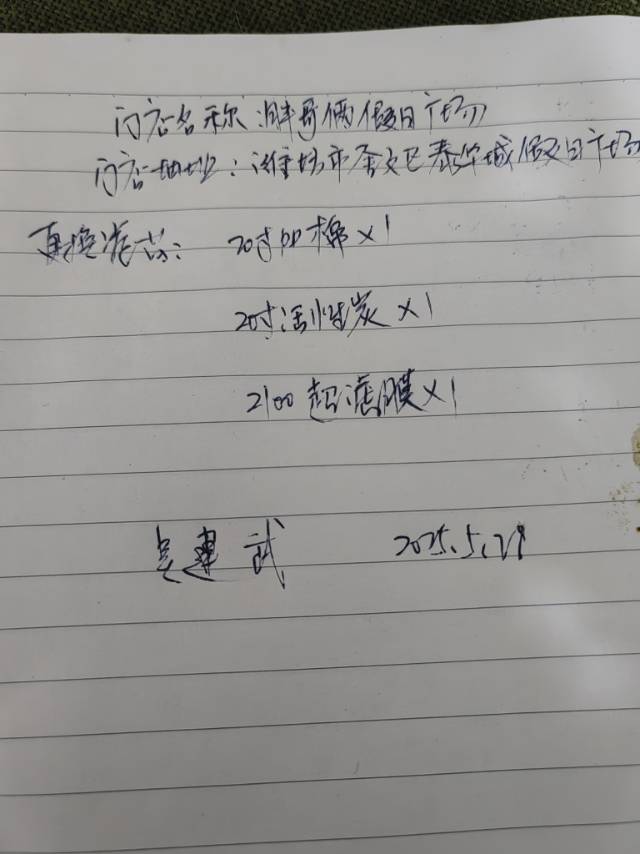 门店名称 胖哥俩假日广场
门店地址：潍坊市奎文区泰华城假日广场
更换滤芯： 20寸PP棉×1
20寸活性炭×1
2100超滤膜×1
吴建武 2025.5.29